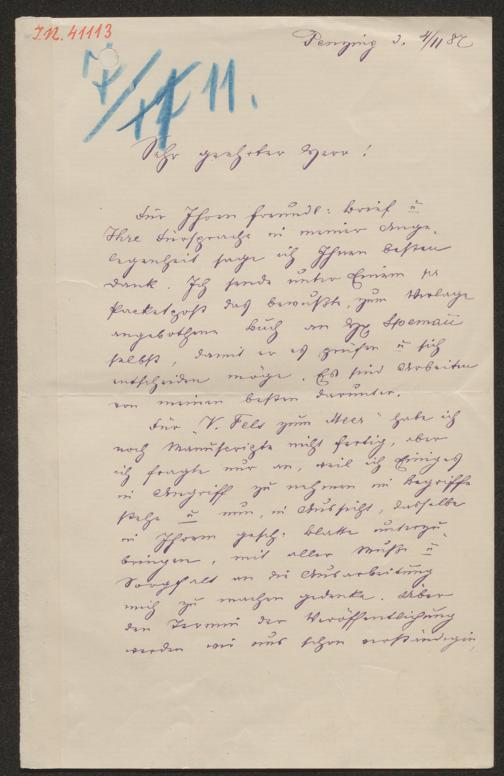 I.N. 41113
Penzing d. 4/11 87
7/11 11.
Sehr geehrter Herr!
Für Ihren freundl: Brief u
Ihre Fürsprache in meiner Ange-
legenheit sage ich Ihnen besten
Dank. Ich sende unter Einem pr
Packetpost das bewußte, zum Verlage
angebothene Buch an Hr Spemañ
selbst, damit er es prüfen u sich
entscheiden möge. Es sind Arbeiten
von meinen besten darunter.
Für "V. Fels zum Meer" habe ich
noch Manuscripte nicht fertig, aber
ich fragte nur an, weil ich Einiges
in Angriff zu nehmen im Begriffe
stehe u nun, in Aussicht, dasselbe
in Ihrem gesch: Blatte unterzu-
bringen, mit aller Muße u
Sorgfalt an die Ausarbeitung
mich zu machen gedenke. Über
den Termin der Veröffentlichung
werden wir uns schon verständigen,